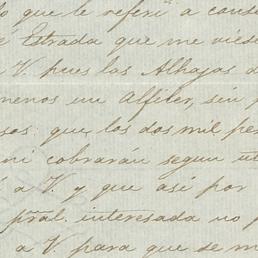 lo que le referí a causa
é Estrada que me viese
a V. pues las Alhajas d
menos un Alfiler, sin p
sos; que los dos mil pe
ni cobrarán segun
á V. y que así por
pral. interesada no p
a V. para que se m